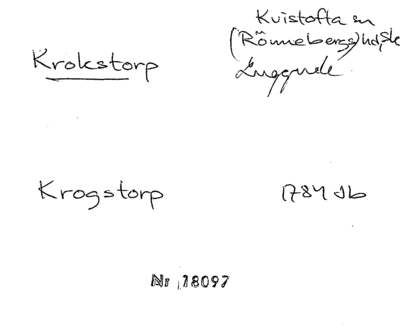 Kvistofta sn
Krokstorp (Rönnebergs) hd, Sk
Luggude
Krogstorp 1784 Jb
Nr 18097